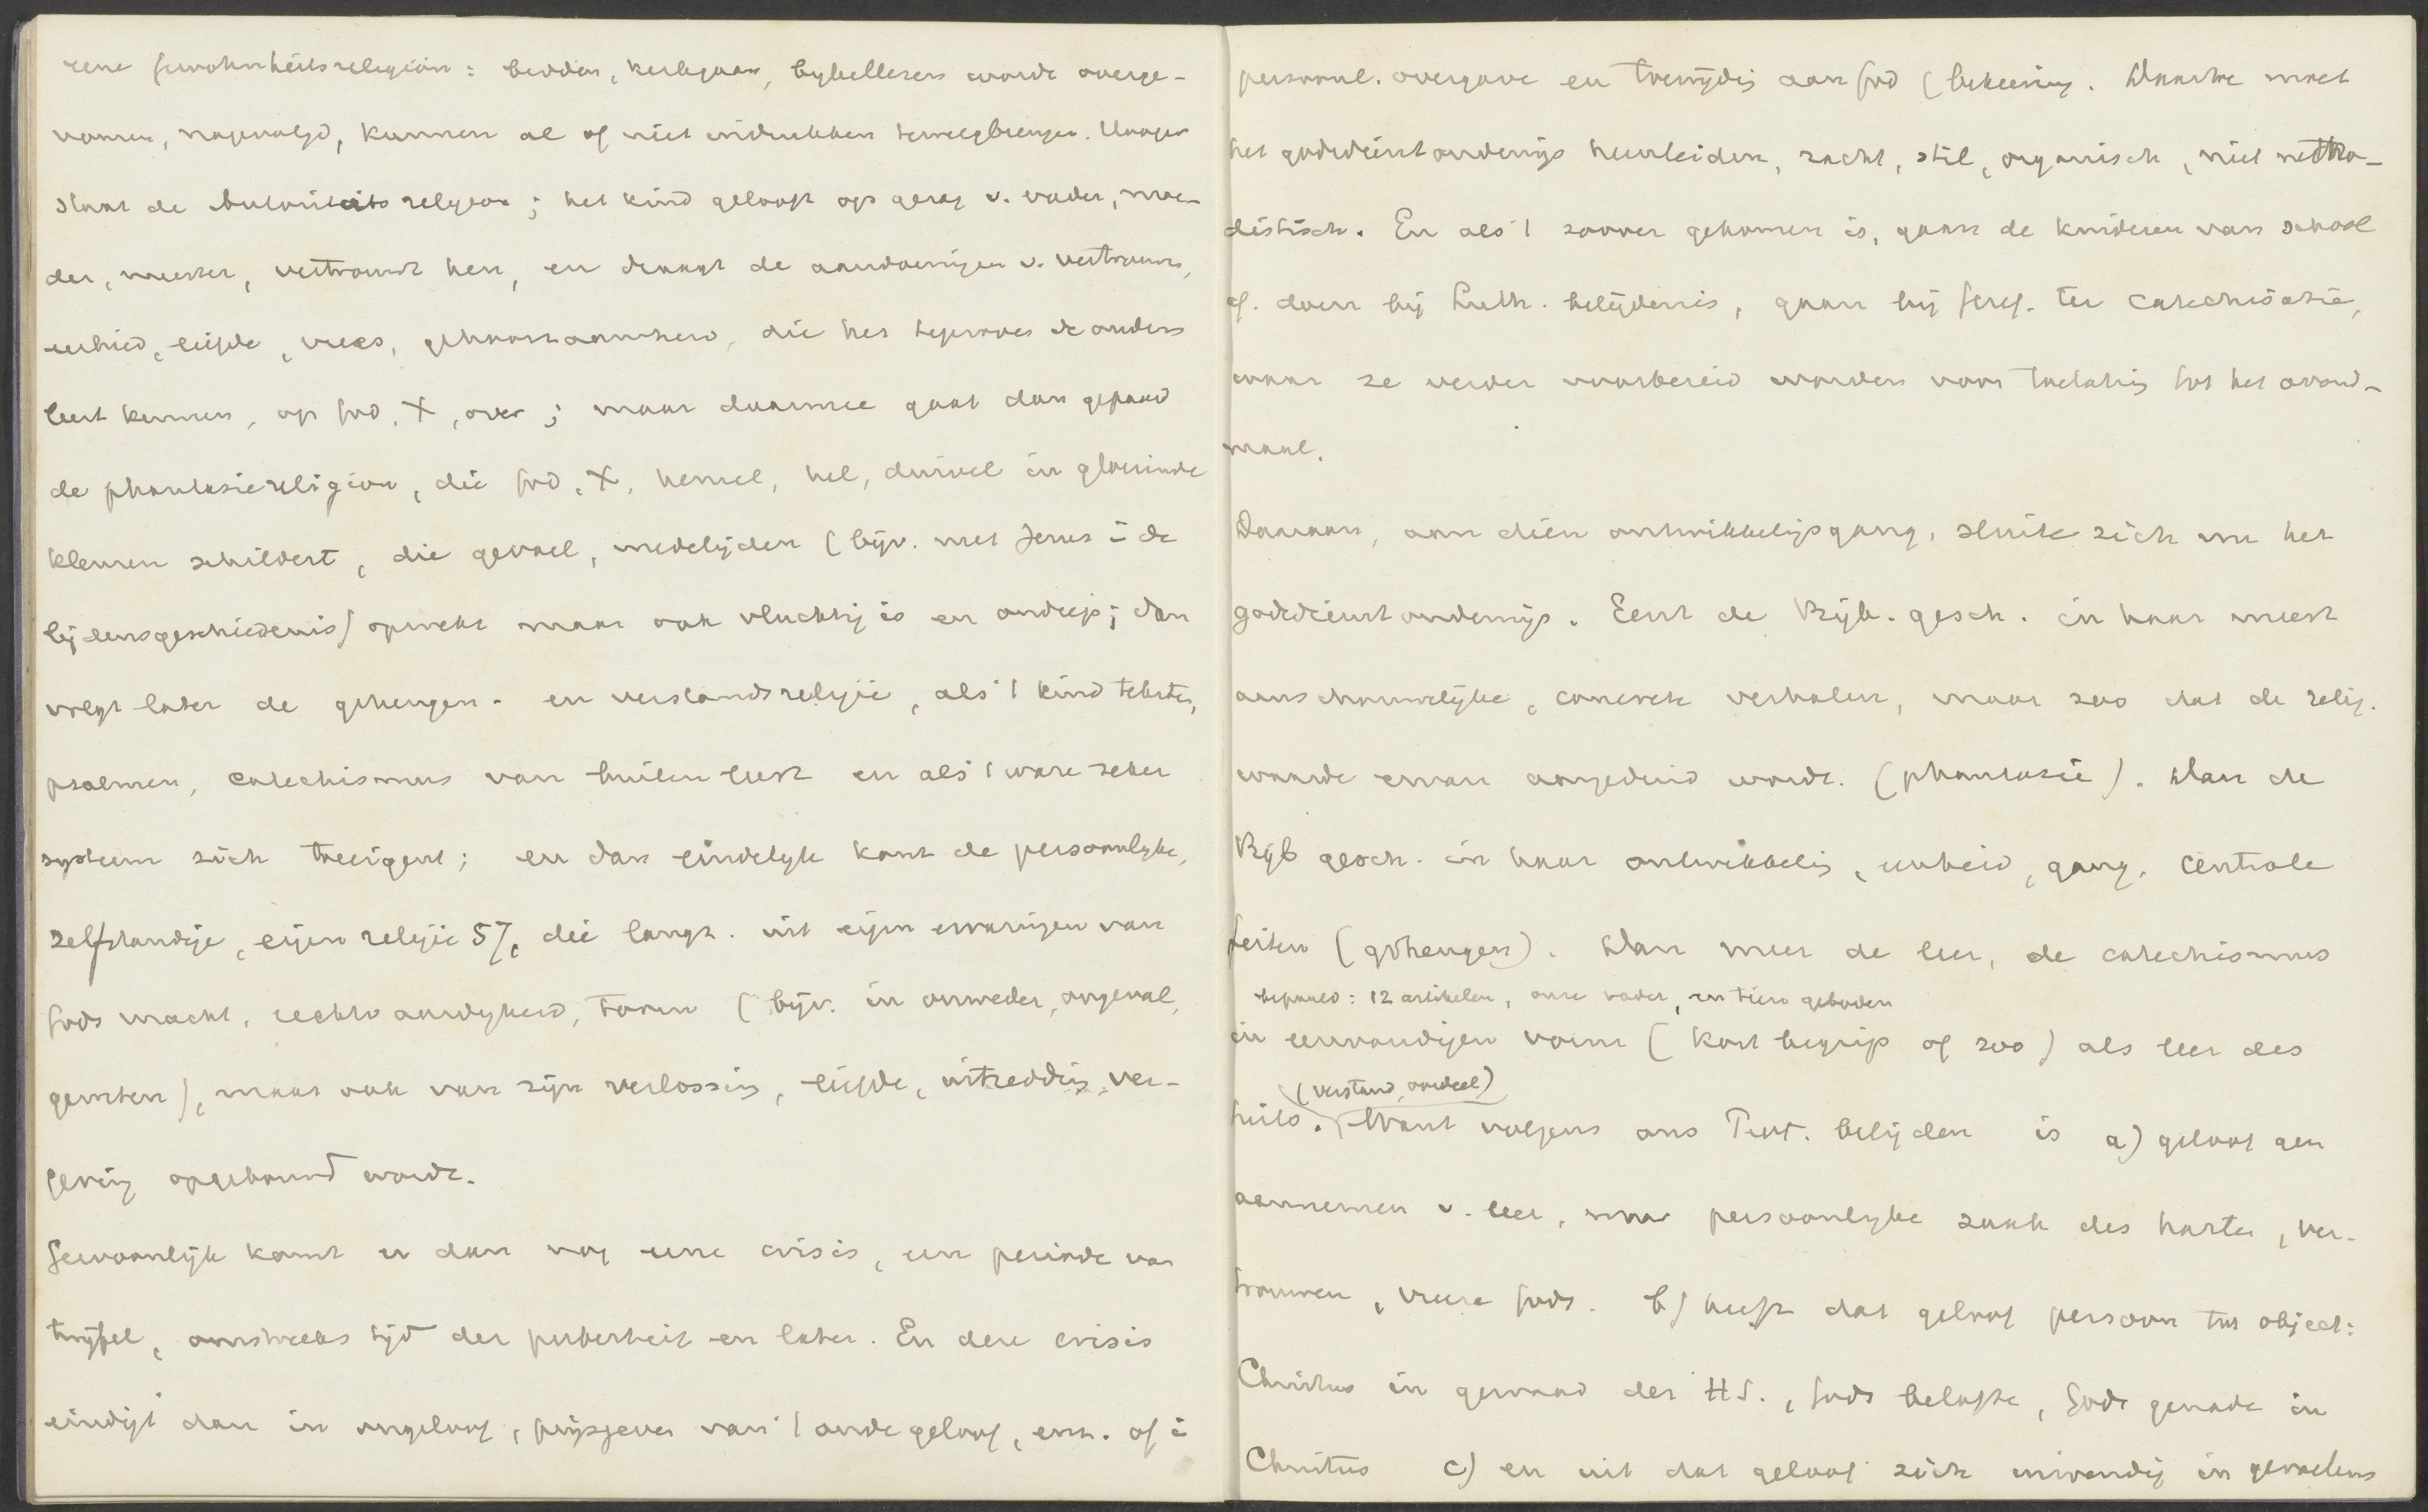 eene Gewohnheitsreligion: bidden, kerkgaan, bybellezen worde overge-
nomen, nagevolgd, kunnen al of niet indrukken teweegbrengen. Hooger
staat de Autoriteits religion; het kind gelooft op gezag v. vader, moe-
der, meester, vertrouwt hen, en draagt de aandoeningen v. vertrouwen,
eerbied, liefde, vrees, gehoorzaamheid, die het tegenover de ouders
leert kennen, op God, X, over; maar daarmee gaat dan gepaard
de phantasiereligion, die God, X, hemel, hel, duivel in gloeiende
kleuren schildert, die gevoel, medelijden (bijv. met Jezus i de
lijdensgeschiedenis) opwekt maar ook vluchtig is en ondiep; dan
volgt later de geheugen- en verstandsreligie, als 't kind teksten,
psalmen, catechismus van buiten leert en als 't ware zeker
systeem zich toeeigent; en dan eindelyk komt de persoonlyke,
zelfstandige, eigen religie 57, die langz. uit eigen ervaringen van
Gods macht, rechtvaardigheid, toorn (bijv. in onweder, ongeval,
geweten), maar ook van zijn verlossing, liefde, uitredding, ver-
geving opgebouwd worde.
Gewoonlijk komt er dan nog eene crisis, een periode van
twijfel, omstreeks tijd der puberteit en later. En deze crisis
eindigt dan in ongeloof, prijsgeven van 't oude geloof, enz. of i
persoonl. overgave en toewijding aan God (bekeering. Daartoe moet
het godsdienstonderwijs heenleiden, zacht, stil, organisch, niet metho-
distisch. En als 't zoover gekomen is, gaan de kinderen van school
of. doen bij Luth. belijdenis, gaan bij Geref. ter catechisatie,
waar ze verder voorbereid worden voor toelating tot het avond-
maal.
Daaraan, aan dien ontwikkelingsgang, sluite zich nu het
godsdienstonderwijs. Eerst de Bijb. gesch. in haar meest
aanschouwelijke, concrete verhalen, maar zoo dat de relig.
waarde ervan aangeduid worde. (phantasie). Dan de
Bijb gesch. in haar ontwikkeling, eenheid, gang, centrale
feiten (geheugen). Dan meer de leer, de catechismus
bepaald: 12 artikelen, onze vader, en tien geboden
in eenvoudigen vorm (kort begrip of zoo) als leer des
(verstand, oordeel)
heils. Want volgens ons Prot. belijden is a) geloof geen
aannemen v. leer, maar persoonlyke zaak des harten, ver-
trouwen, vreeze Gods. b) heeft dat geloof persoon tot object:
Christus in gewaad der H S., Gods belofte, Gods genade in
Christus c) en uit dat geloof zich inwendig in gevoelens